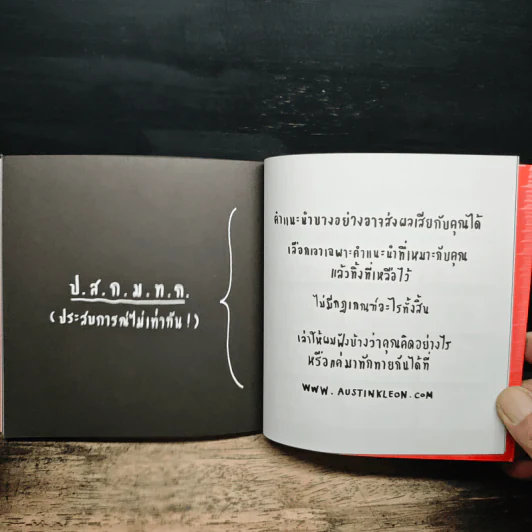 ป.ส.ก.ม.ท.ก.
(ประสบการณ์ไม่เท่ากัน!)
คำแนะนำบางอย่างอาจส่งผลเสียกับคุณได้
เลือกเอาเฉพาะคำแนะนำที่เหมาะกับคุณ
แล้วทิ้งที่เหลือไว้
ไม่มีกฎเกณฑ์อะไรทั้งสิ้น
เล่าให้ผมฟังบ้างว่าคุณคิดอย่างไร
หรือแค่มาทักทายกันได้ที่
WWW.AUSTINKLEON.COM